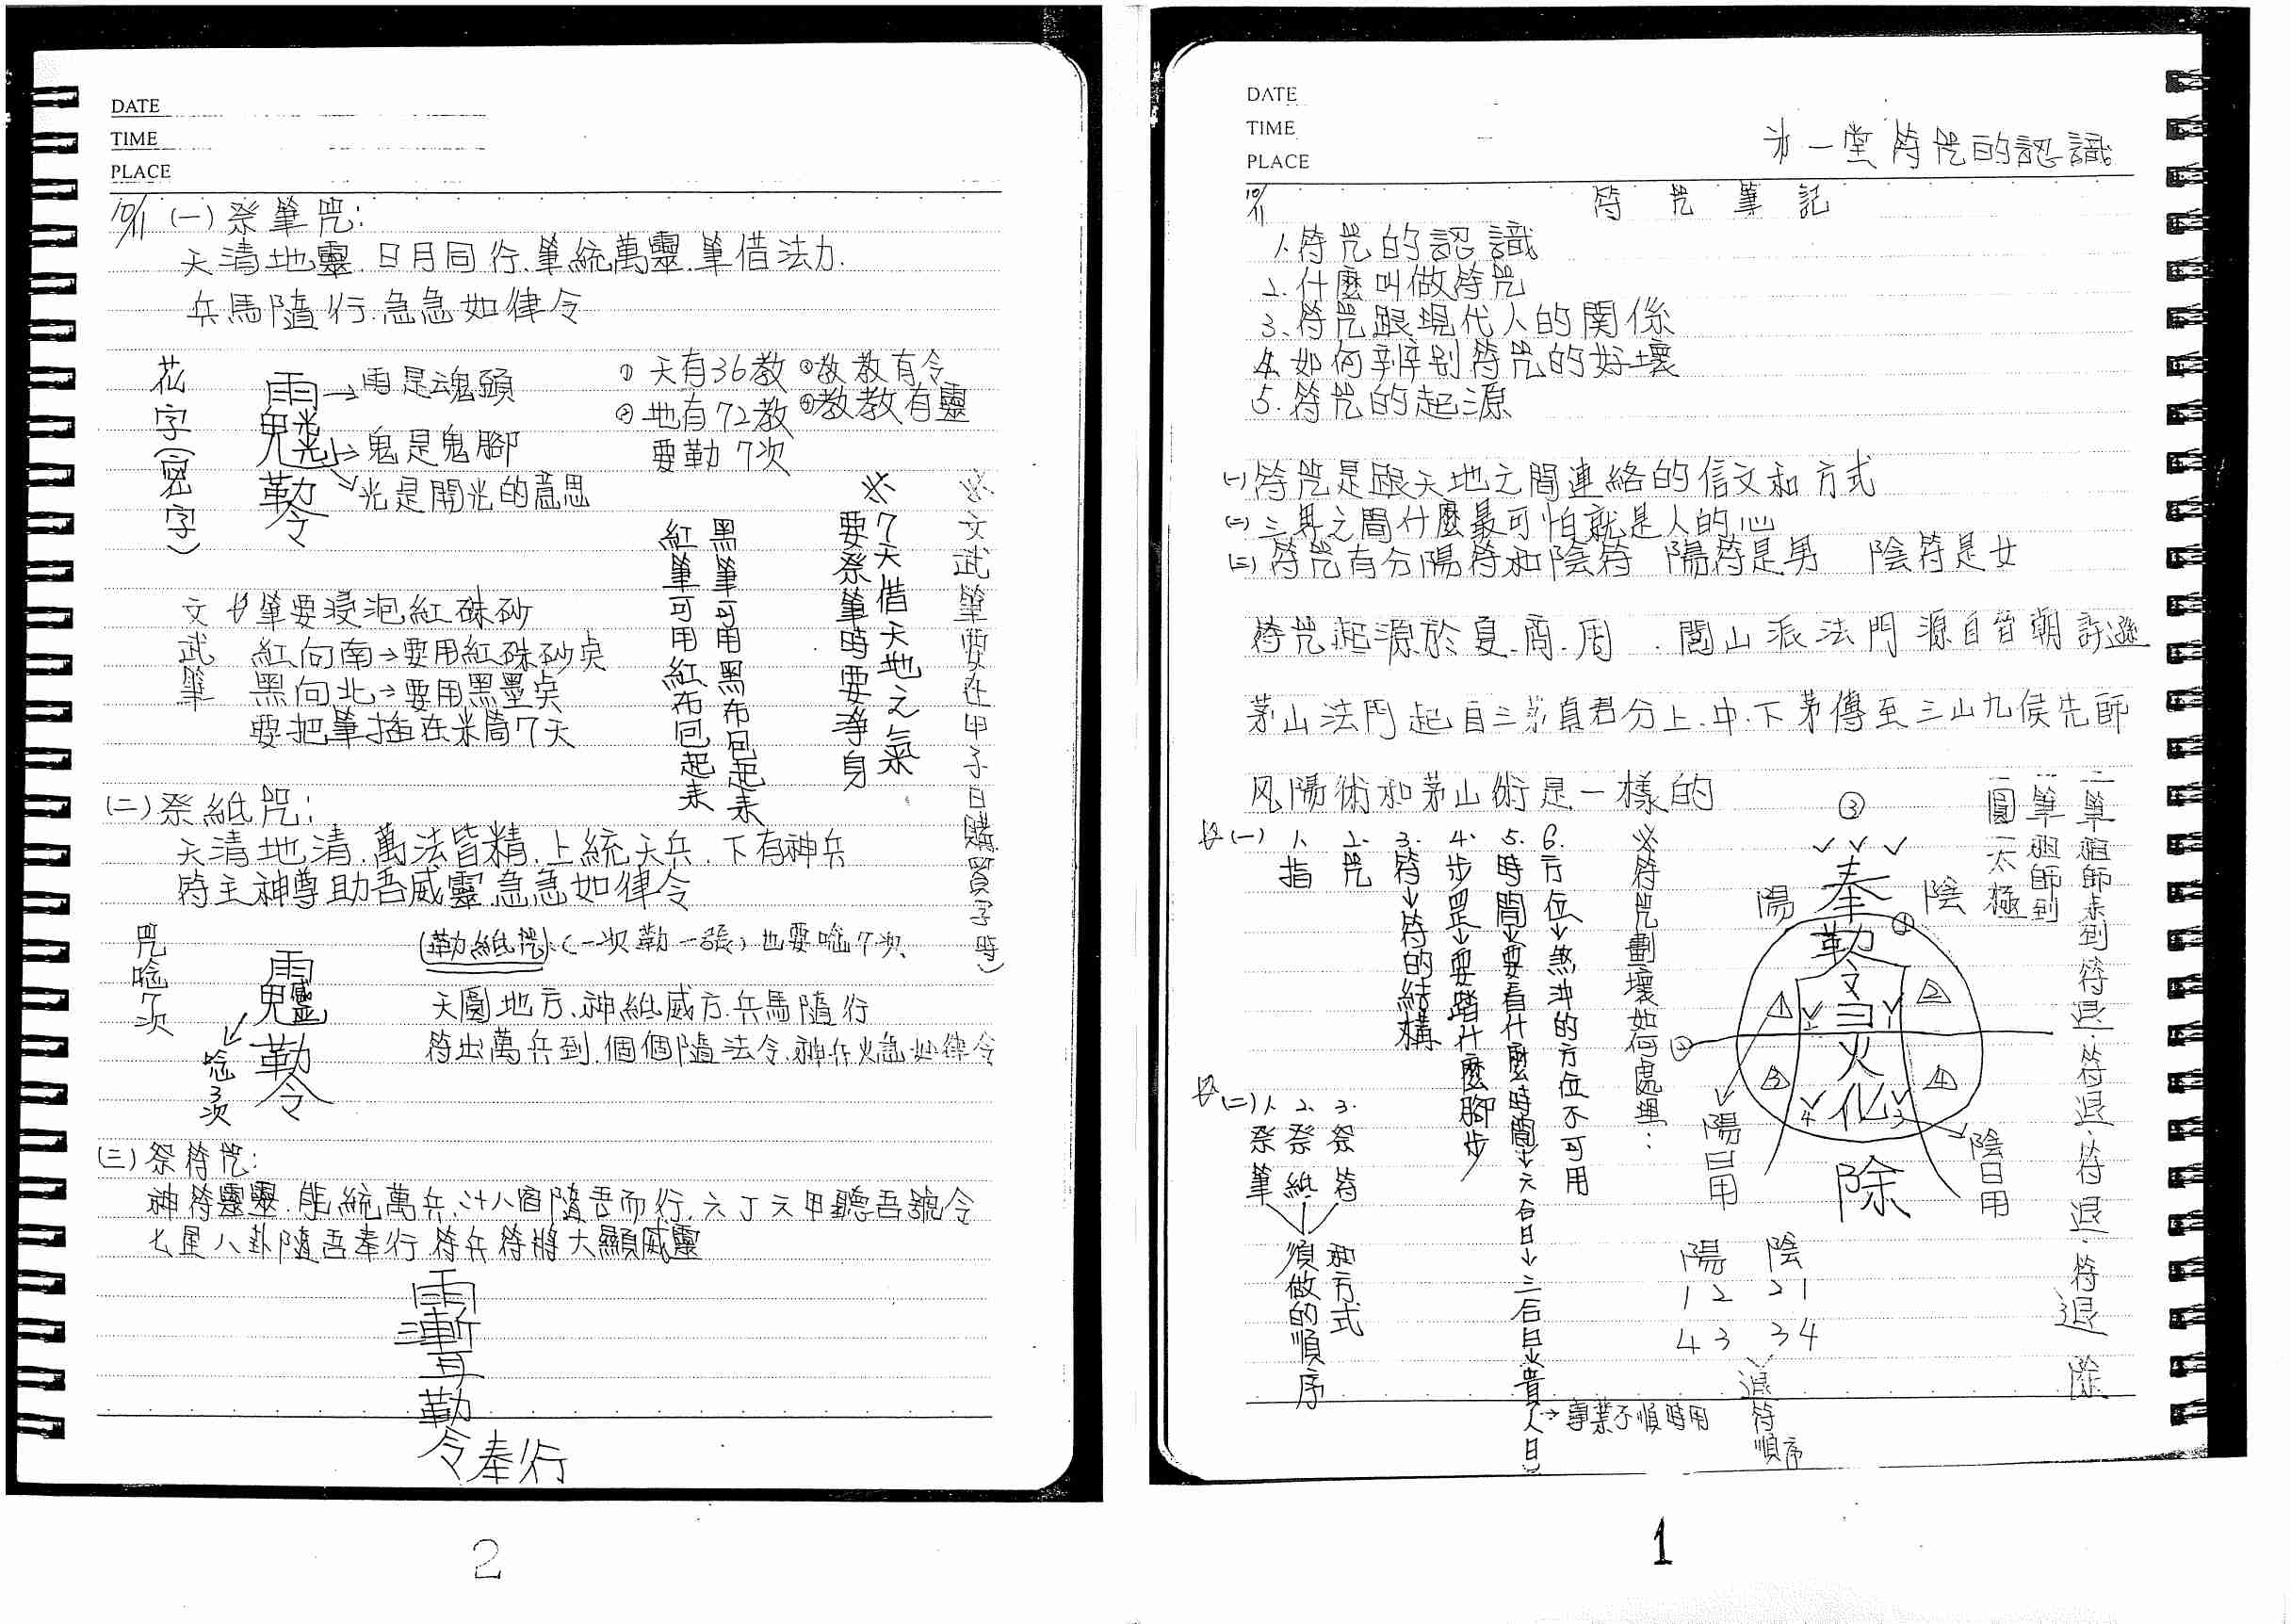 DATE
TIME
PLACE
第一堂符咒的認識
10/11
符咒筆記
1.符咒的認識
2.什麼叫做符咒
3.符咒跟現代人的關係
4.如何辨別符咒的好壞
5.符咒的起源
(一)符咒是跟天地之間連絡的信文和方式
(二)三界之間什麼最可怕就是人的心
(三)符咒有分陽符和陰符 陽符是男 陰符是女
符咒起源於夏.商.周.閭山派法門源自晉朝許遜
茅山法門起自三茅真君分上.中.下茅傳至三山九侯先師
风陽術和茅山術是一樣的
(一)
1.指
2.咒
3.符→符的結構
4.步罡→要踏什麼腳步
5.時間→要看什麼時間→六合日→三合日→貴人日
→事業不順時用
6.方位→煞沖的方位不可用
※符咒劃壞如何處理:
(二)
1.祭筆
2.祭紙
3.祭符
須做的順序
和方式
二筆祖師未到符退.符退.符退.符退 除
一筆祖師到
圓 太極
③
陽
陰
奉
勅
令
①
②
1
2
3
4
火
化
除
陽日用
陰日用
陽 陰
12 21
43 34
退符順序
1
DATE
TIME
PLACE
10/11
(一)祭筆咒:
天清地靈.日月同行.筆統萬靈.筆借法力.
兵馬隨行.急急如律令
花字(密字)
雨
勒
令
→雨是魂頭
→鬼是鬼腳
光是開光的意思
①天有36教
②地有72教
③教教有令
④教教有靈
要勒7次
文武筆
筆要浸泡紅硃砂
紅向南→要用紅硃砂点
黑向北→要用黑墨点
要把筆插在米筒7天
※文武筆要在甲子日購買子時)
※7天借天地之氣
要祭筆時要淨身
黑筆可用黑布包起來
紅筆可用紅布包起來
(二)祭紙咒:
天清地清.萬法皆精.上統天兵.下有神兵
符主神尊助吾威靈.急急如律令
咒唸7次
勒
令
唸3次
(勒紙咒)(一次勒一張)也要唸7次.
天圓地方.神紙威方.兵馬隨行
符出萬兵到.個個隨法令.神兵火急如律令
(三)祭符咒:
神符靈靈.能統萬兵.廿八宿隨吾而行.六丁六甲聽吾號令
七星八卦隨吾奉行 符兵符將大顯威靈
勒
令奉行
2